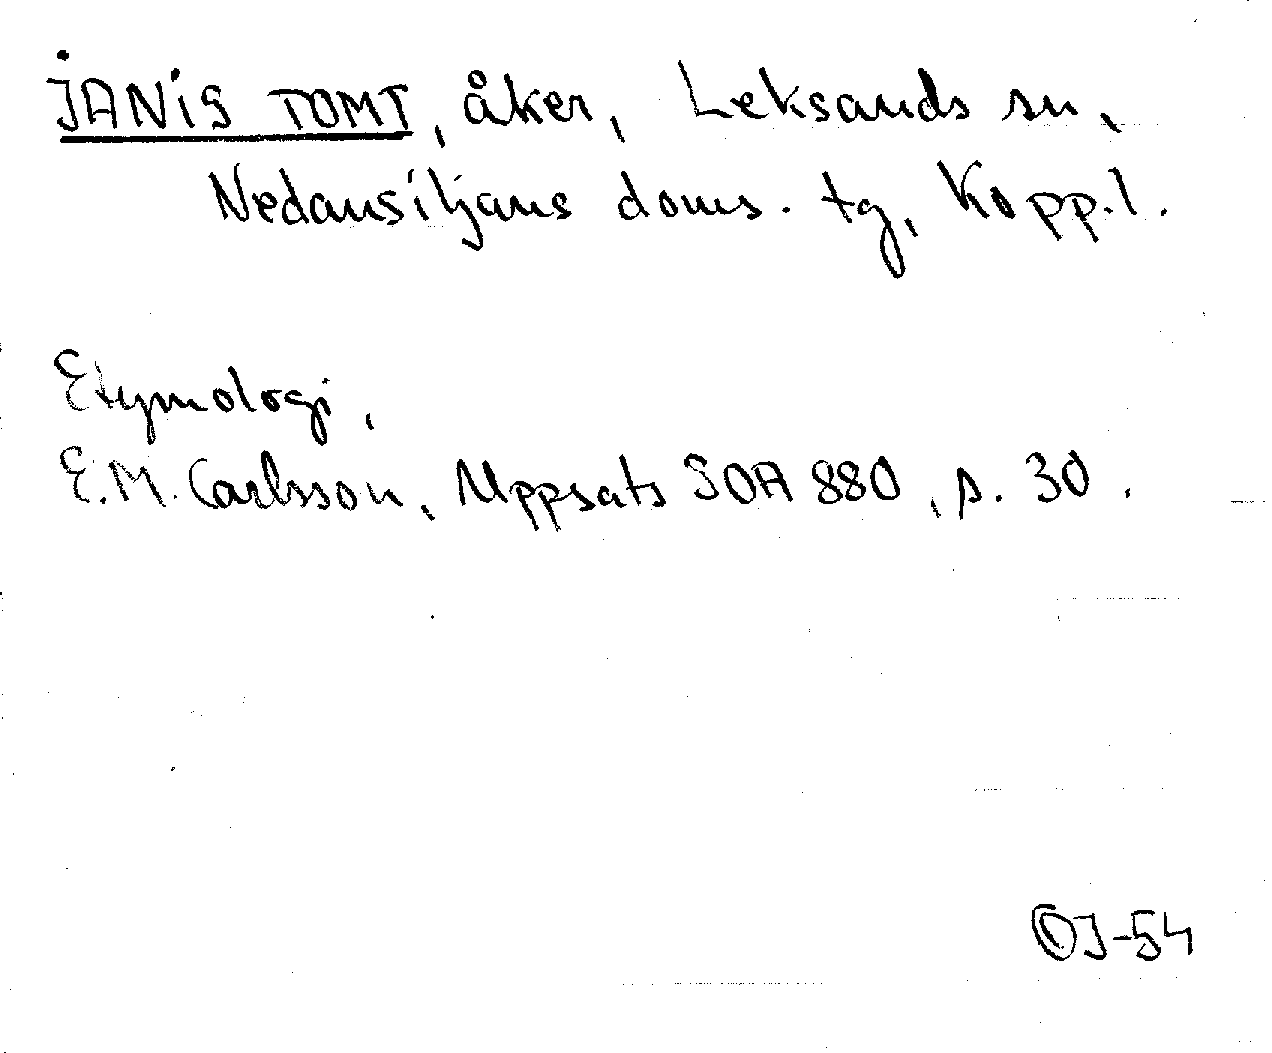 JANIS TOMT, åker, Leksands sn,
Nedansiljans doms. tg, Kopp.l.
Etymologi,
E.M. Carlsson, Uppsats SOA 880, s. 30.
OJ-54